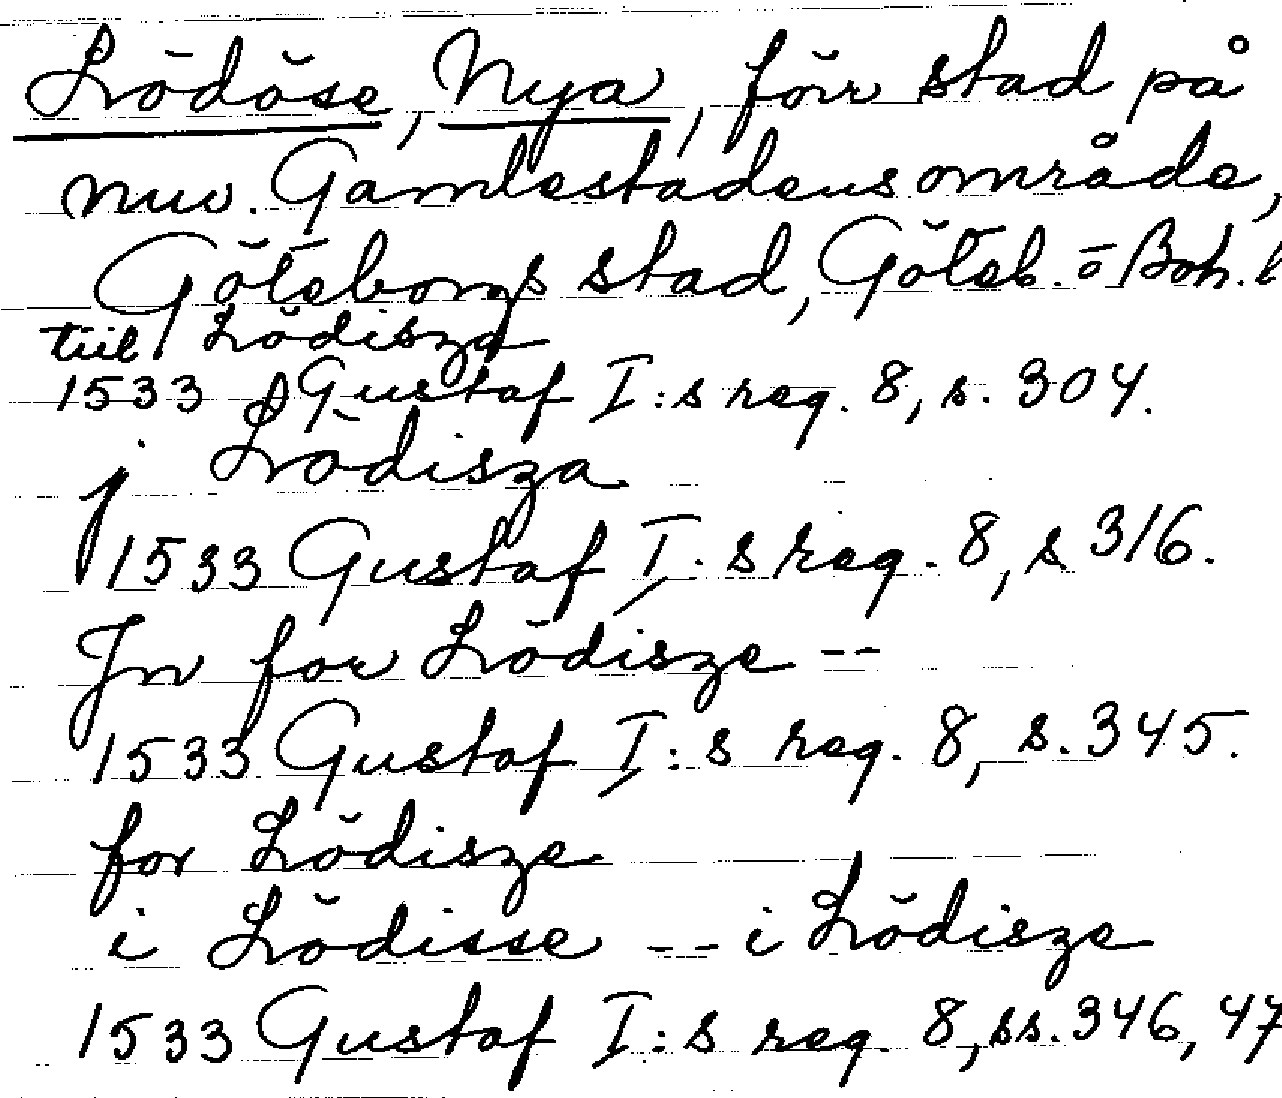 Lödöse, Nya, förr stad på
nuv. Gamlestadens område,
Göteborgs stad, Göteb. o Boh. l
tiil Lödisza
1533 Gustaf I:s reg. 8, s. 304.
j Lödisza
1533 Gustaf I:s reg. 8, s 316.
Jn for Lödisze --
1533 Gustaf I:s reg. 8, s. 345.
for Lödisze
i Lödisse -- i Lödisze
1533 Gustaf I:s reg. 8, ss. 346, 47